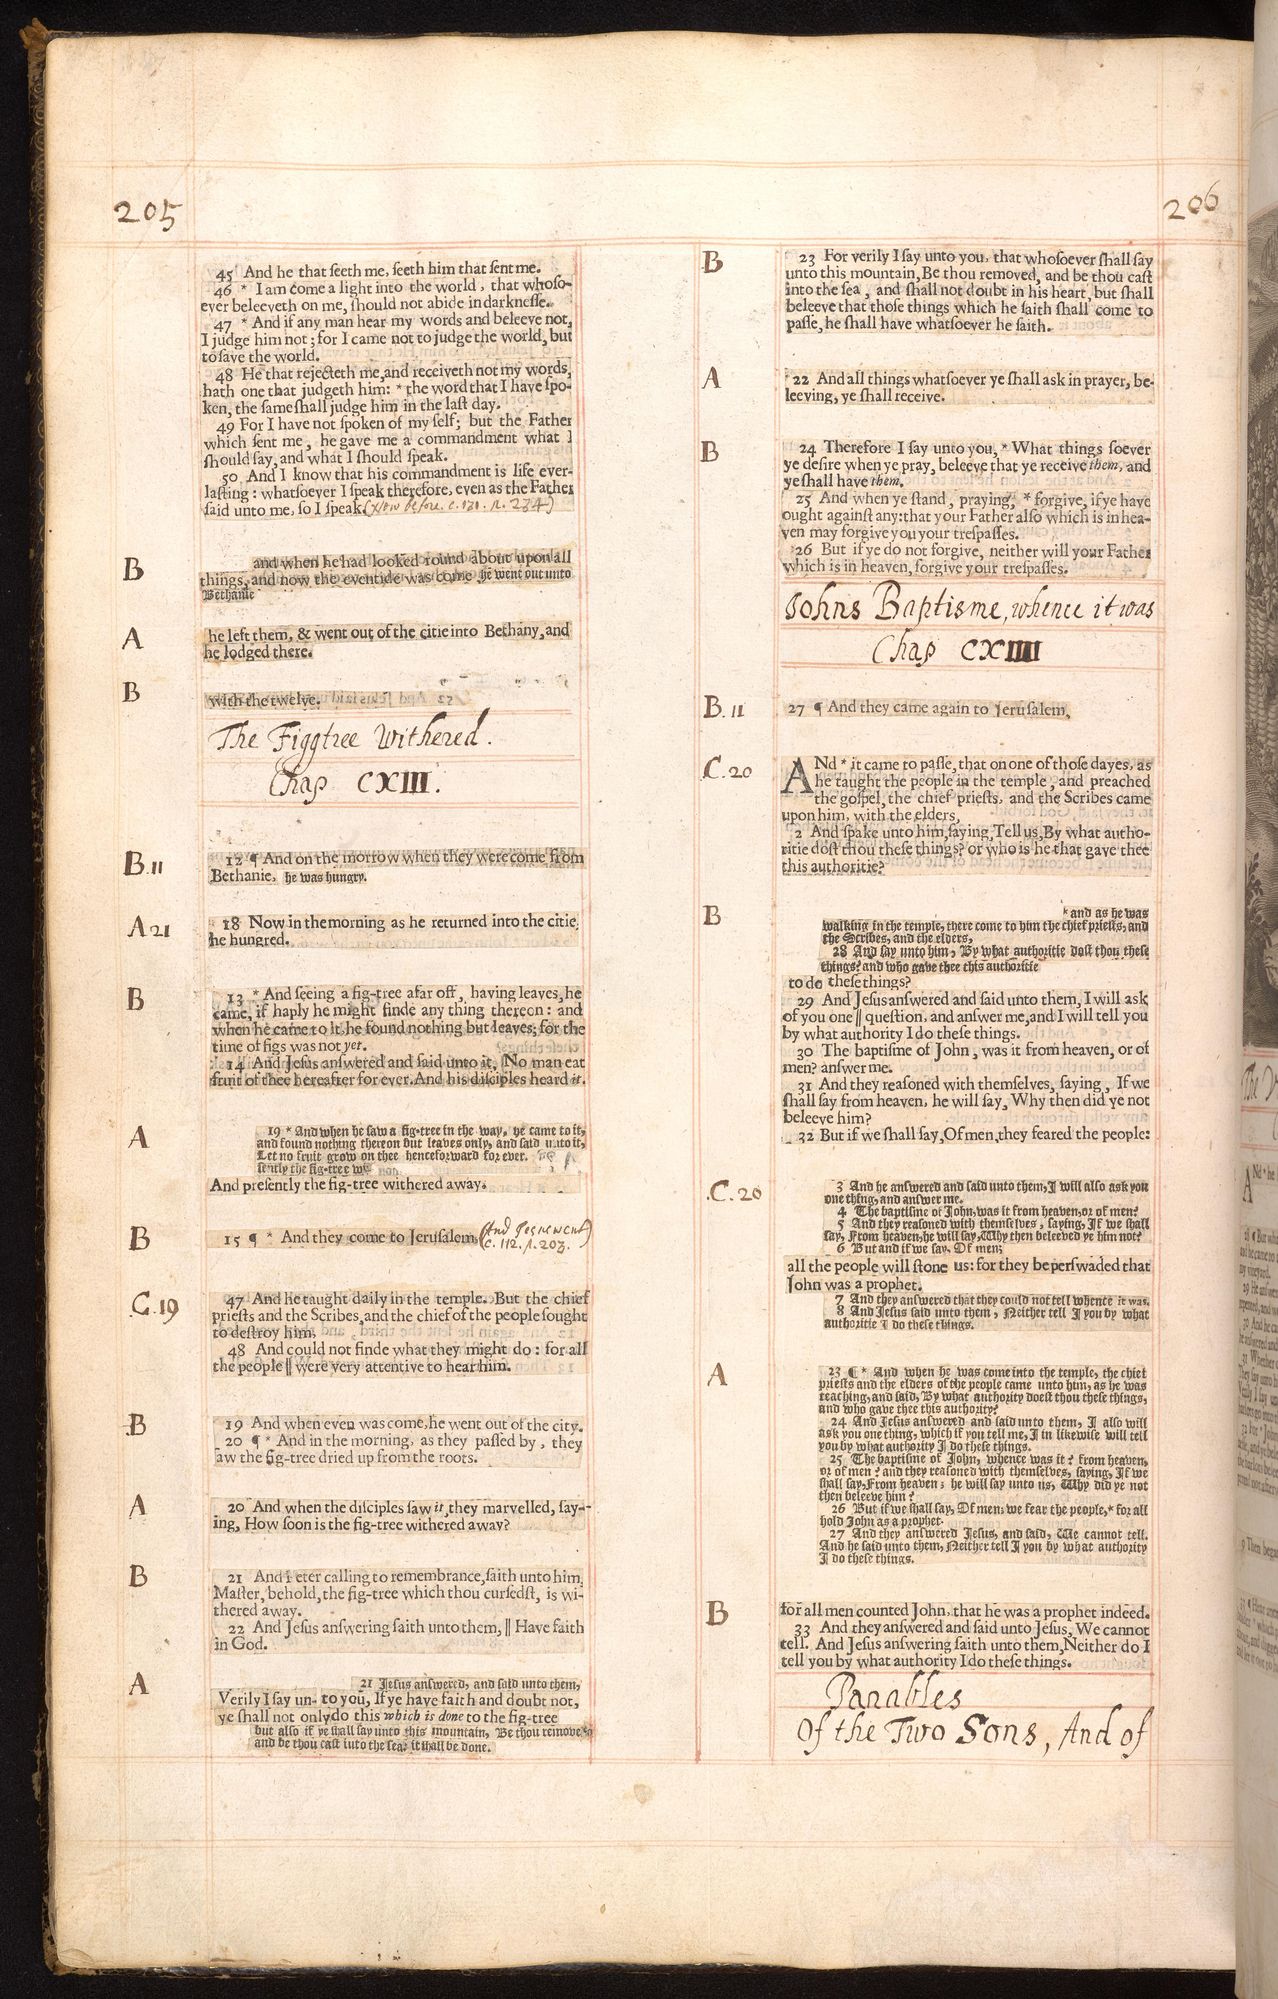 205
45 And he that ſeeth me, ſeeth him that ſent me.
46 * I am come a light into the world, that whoſo-
ever beleeveth on me, ſhould not abide in darkneſſe.
47 * And if any man hear my words and beleeve not,
I judge him not; for I came not to judge the world, but
to ſave the world.
48 He that rejecteth me, and receiveth not my words,
hath one that judgeth him: * the word that I have ſpo-
ken, the ſame ſhall judge him in the laſt day.
49 For I have not ſpoken of my ſelf; but the Father
which ſent me, he gave me a commandment what I
ſhould ſay, and what I ſhould ſpeak.
50 And I know that his commandment is life ever-
laſting: whatſoever I ſpeak therefore, even as the Father
ſaid unto me, ſo I ſpeak. before. c. 131. p. 234)
B
and when he had looked round about upon all
things, and now the eventide was come he went out unto
Bethanie
A
he left them, & went out of the citie into Bethany, and
he lodged there.
B
with the twelve.
The Figgtree Withered.
Chap CXIII.
B. 11
12 ¶ And on the morrow when they were come from
Bethanie, he was hungry.
A 21
18 Now in the morning as he returned into the citie,
he hungred.
B
13 * And ſeeing a fig-tree afar off, having leaves, he
came, if haply he might finde any thing thereon: and
when he came to it, he found nothing but leaves; for the
time of figs was not yet.
14 And Jeſus anſwered and ſaid unto it, No man eat
fruit of thee hereafter for ever. And his diſciples heard it.
A
19 * And when he ſaw a fig-tree in the way, he came to it,
and found nothing thereon but leaves only, and ſaid unto it,
Let no fruit grow on thee henceforward for ever.
ſently the fig-tree
And preſently the fig-tree withered away.
B
15 ¶ * And they come to Jeruſalem,
c. 112. p. 203.
C. 19
47 And he taught daily in the temple. But the chief
prieſts and the Scribes, and the chief of the people ſought
to deſtroy him,
48 And could not finde what they might do: for all
the people || were very attentive to hear him.
B
19 And when even was come, he went out of the city.
20 ¶ * And in the morning, as they paſſed by, they
aw the fig-tree dried up from the roots.
A
20 And when the diſciples ſaw it, they marvelled, ſay-
ing, How ſoon is the fig-tree withered away?
B
21 And Peter calling to remembrance, ſaith unto him,
Maſter, behold, the fig-tree which thou curſedſt, is wi-
thered away.
22 And Jeſus anſwering ſaith unto them, || Have faith
in God.
A
21 Jeſus anſwered, and ſaid unto them,
Verily I ſay un- to you, If ye have faith and doubt not,
ye ſhall not only do this which is done to the fig-tree
but alſo if ye ſhall ſay unto this mountain, Be thou removed,
and be thou caſt into the ſea; it ſhall be done.
206
B
23 For verily I ſay unto you, that whoſoever ſhall ſay
unto this mountain, Be thou removed, and be thou caſt
into the ſea, and ſhall not doubt in his heart, but ſhall
beleeve that thoſe things which he ſaith ſhall come to
paſſe, he ſhall have whatſoever he ſaith.
A
22 And all things whatſoever ye ſhall ask in prayer, be-
leeving, ye ſhall receive.
B
24 Therefore I ſay unto you, * What things ſoever
ye deſire when ye pray, beleeve that ye receive them, and
ye ſhall have them.
25 And when ye ſtand, praying, * forgive, if ye have
ought againſt any: that your Father alſo which is in hea-
ven may forgive you your treſpaſſes.
26 But if ye do not forgive, neither will your Father
which is in heaven, forgive your treſpaſſes.
Johns Baptisme, whence it was
Chap CXIIII
B. 11
27 ¶ And they came again to Jeruſalem,
C. 20
ANd * it came to paſſe, that on one of thoſe dayes, as
he taught the people in the temple, and preached
the goſpel, the chief prieſts, and the Scribes came
upon him, with the elders,
2 And ſpake unto him, ſaying, Tell us, By what autho-
ritie doſt thou theſe things? or who is he that gave thee
this authoritie?
B
* and as he was
walking in the temple, there come to him the chief prieſts, and
the Scribes, and the elders,
28 And ſay unto him, By what authoritie doſt thou theſe
things? and who gave thee this authoritie
to do theſe things?
29 And Jeſus anſwered and ſaid unto them, I will ask
of you one || queſtion, and anſwer me, and I will tell you
by what authority I do theſe things.
30 The baptiſme of John, was it from heaven, or of
men? anſwer me.
31 And they reaſoned with themſelves, ſaying, If we
ſhall ſay from heaven, he will ſay, Why then did ye not
beleeve him?
32 But if we ſhall ſay, Of men, they feared the people:
C. 20
3 And he anſwered and ſaid unto them, I will alſo ask you
one thing, and anſwer me.
4 The baptiſme of John, was it from heaven, or of men?
5 And they reaſoned with themſelves, ſaying, If we ſhall
ſay, From heaven, he will ſay, Why then beleeved ye him not?
6 But and if we ſay, Of men;
all the people will ſtone us: for they be perſwaded that
John was a prophet.
7 And they anſwered that they could not tell whence it was.
8 And Jeſus ſaid unto them, Neither tell I you by what
authoritie I do theſe things.
A
23 ¶ * And when he was come into the temple, the chief
prieſts and the elders of the people came unto him, as he was
teaching, and ſaid, By what authority doeſt thou theſe things,
and who gave thee this authority?
24 And Jeſus anſwered and ſaid unto them, I alſo will
ask you one thing, which if you tell me, I in likewiſe will tell
you by what authority I do theſe things.
25 The baptiſme of John, whence was it? from heaven,
or of men? and they reaſoned with themſelves, ſaying, If we
ſhall ſay, From heaven; he will ſay unto us, Why did ye not
then beleeve him?
26 But if we ſhall ſay, Of men; we fear the people, * for all
hold John as a prophet.
27 And they anſwered Jeſus, and ſaid, We cannot tell.
And he ſaid unto them, Neither tell I you by what authority
I do theſe things.
B
for all men counted John, that he was a prophet indeed.
33 And they anſwered and ſaid unto Jeſus, We cannot
tell. And Jeſus anſwering ſaith unto them, Neither do I
tell you by what authority I do theſe things.
Parables
Of the Two Sons, And of